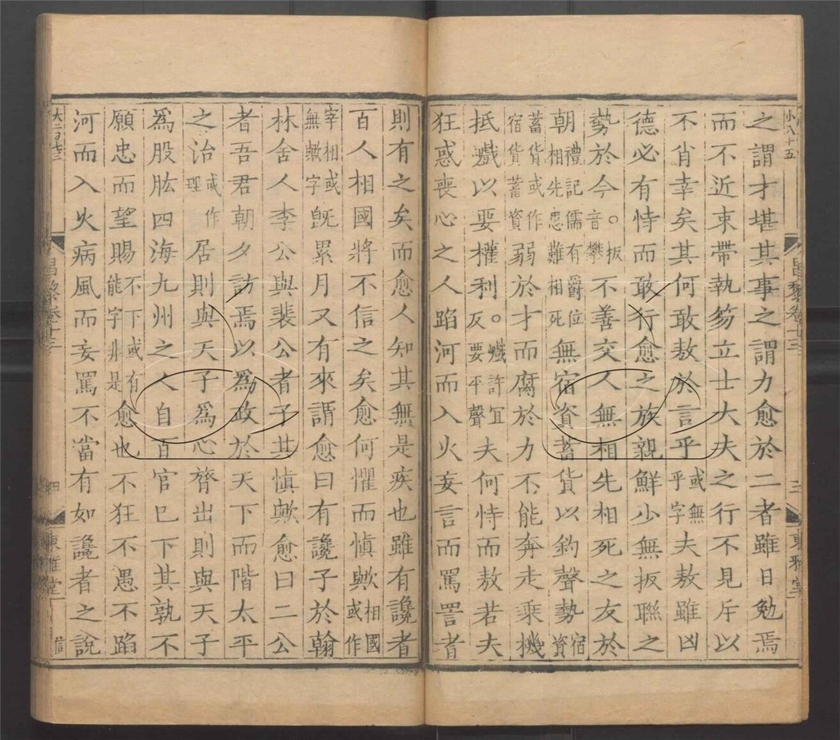 小八十五
昌黎卷十三
三
東雅堂
之謂才堪其事之謂力愈於二者雖日勉焉
而不近束帶執笏立士大夫之行不見斥以
不肖幸矣其何敢敖於言乎或無乎字夫敖雖凶
德必有恃而敢行愈之族親鮮少無扳聯之
勢於今扳音攀。不善交人無相先相死之友於
朝禮記儒有爵位相先患難相死無宿資蓄貨以釣聲勢宿資
蓄貨或作宿貨蓄資弱於才而腐於力不能奔走乗機
抵巇以要權利巇許宜反要平聲。夫何恃而敖若夫
狂惑喪心之人蹈河而入火妄言而罵詈者
則有之矣而愈人知其無是疾也雖有讒者
百人相國將不信之矣愈何懼而慎歟相國或作
宰相或無歟字旣累月又有來謂愈曰有讒子於翰
林舍人李公與裴公者子其慎歟愈曰二公
者吾君朝夕訪焉以爲政於天下而階太平
之治或作理居則與天子爲心膂出則與天子
爲股肱四海九州之人自百官已下其孰不
願忠而望賜不下或有能字非是愈也不狂不愚不蹈
河而入火病風而妄罵不當有如讒者之說
昌黎卷十三
四
東雅堂